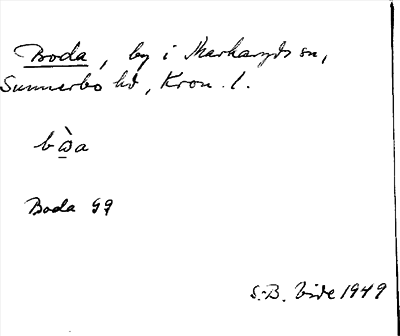 Boda, by i Markaryds sn,
Sunnerbo hd, Kron. l.
bὼ̲a
Boda GG
S.-B. Vide 1949